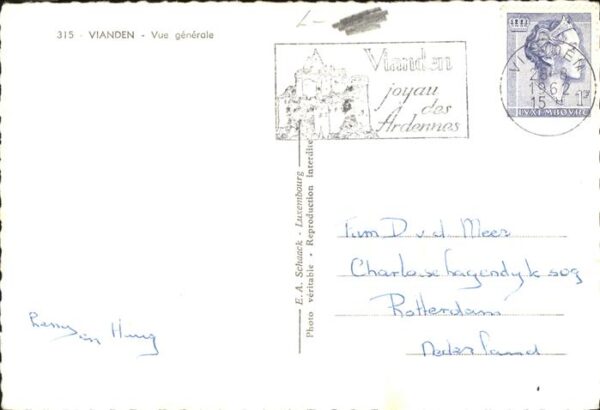 315 - VIANDEN - Vue générale
Vianden
joyau
des
Ardennes
VIANDEN
1962
15
LUXEMBOURG
E. A. Schaack - Luxembourg
Photo véritable - Reproduction Interdite
Fam D v.d. Meer
Rotterdam
Nederland